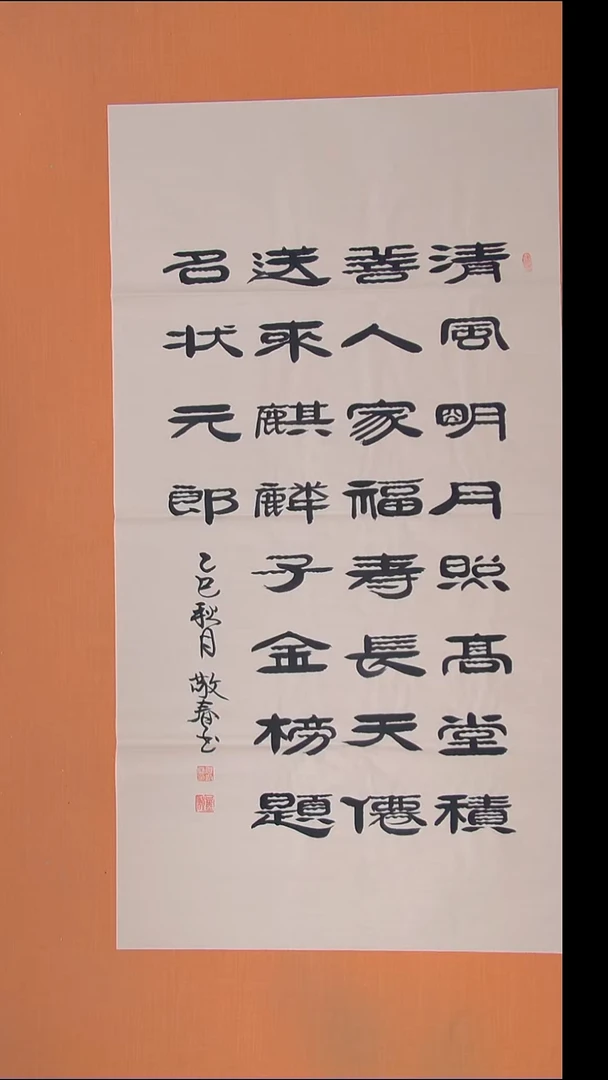 清風明月照高堂積
善人家福寿長天僊
送來麒麟子金榜題
名状元郎
乙巳秋月敬春书